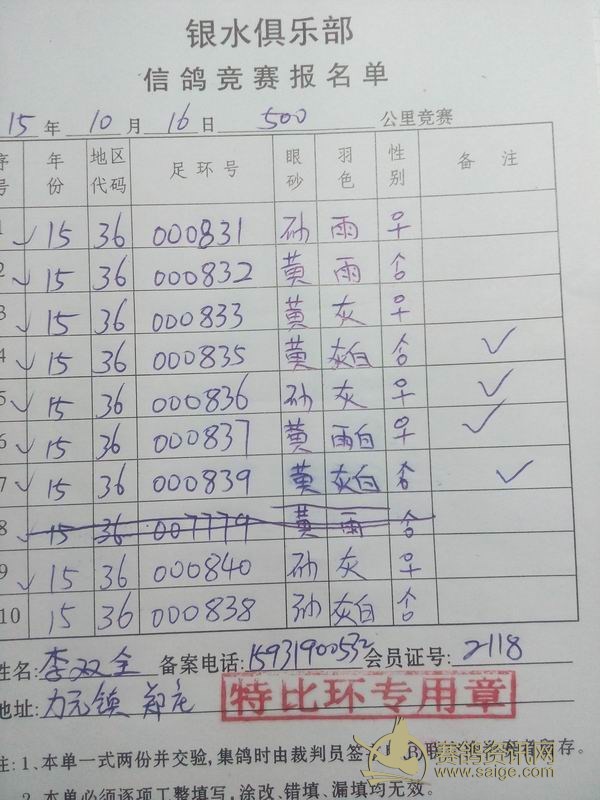 银水俱乐部
信鸽竞赛报名单
15年 10月 16日 500 公里竞赛
序号 年份 地区代码 足环号 眼砂 羽色 性别 备注
1 ✓ 15 36 000831 砂 雨 ♀
2 ✓ 15 36 000832 黄 雨 ♂
3 ✓ 15 36 000833 黄 灰 ♀
4 ✓ 15 36 000835 黄 灰白 ♂ ✓
5 ✓ 15 36 000836 砂 灰 ♀ ✓
6 ✓ 15 36 000837 黄 雨白 ♀ ✓
7 ✓ 15 36 000839 黄 灰白 ♂ ✓
8 15 36 007779 黄 雨 ♂
9 ✓ 15 36 000840 砂 灰 ♀
10 15 36 000838 砂 灰白 ♂
姓名: 李双全 备案电话: 15931900532 会员证号: 2118
地址: 郑庄
特比环专用章
注: 1、本单一式两份并交验,集鸽时由裁判员签
存。
赛鸽资讯网
www.saige.com
2、本单必须逐项工整填写,涂改、错填、漏填均无效。